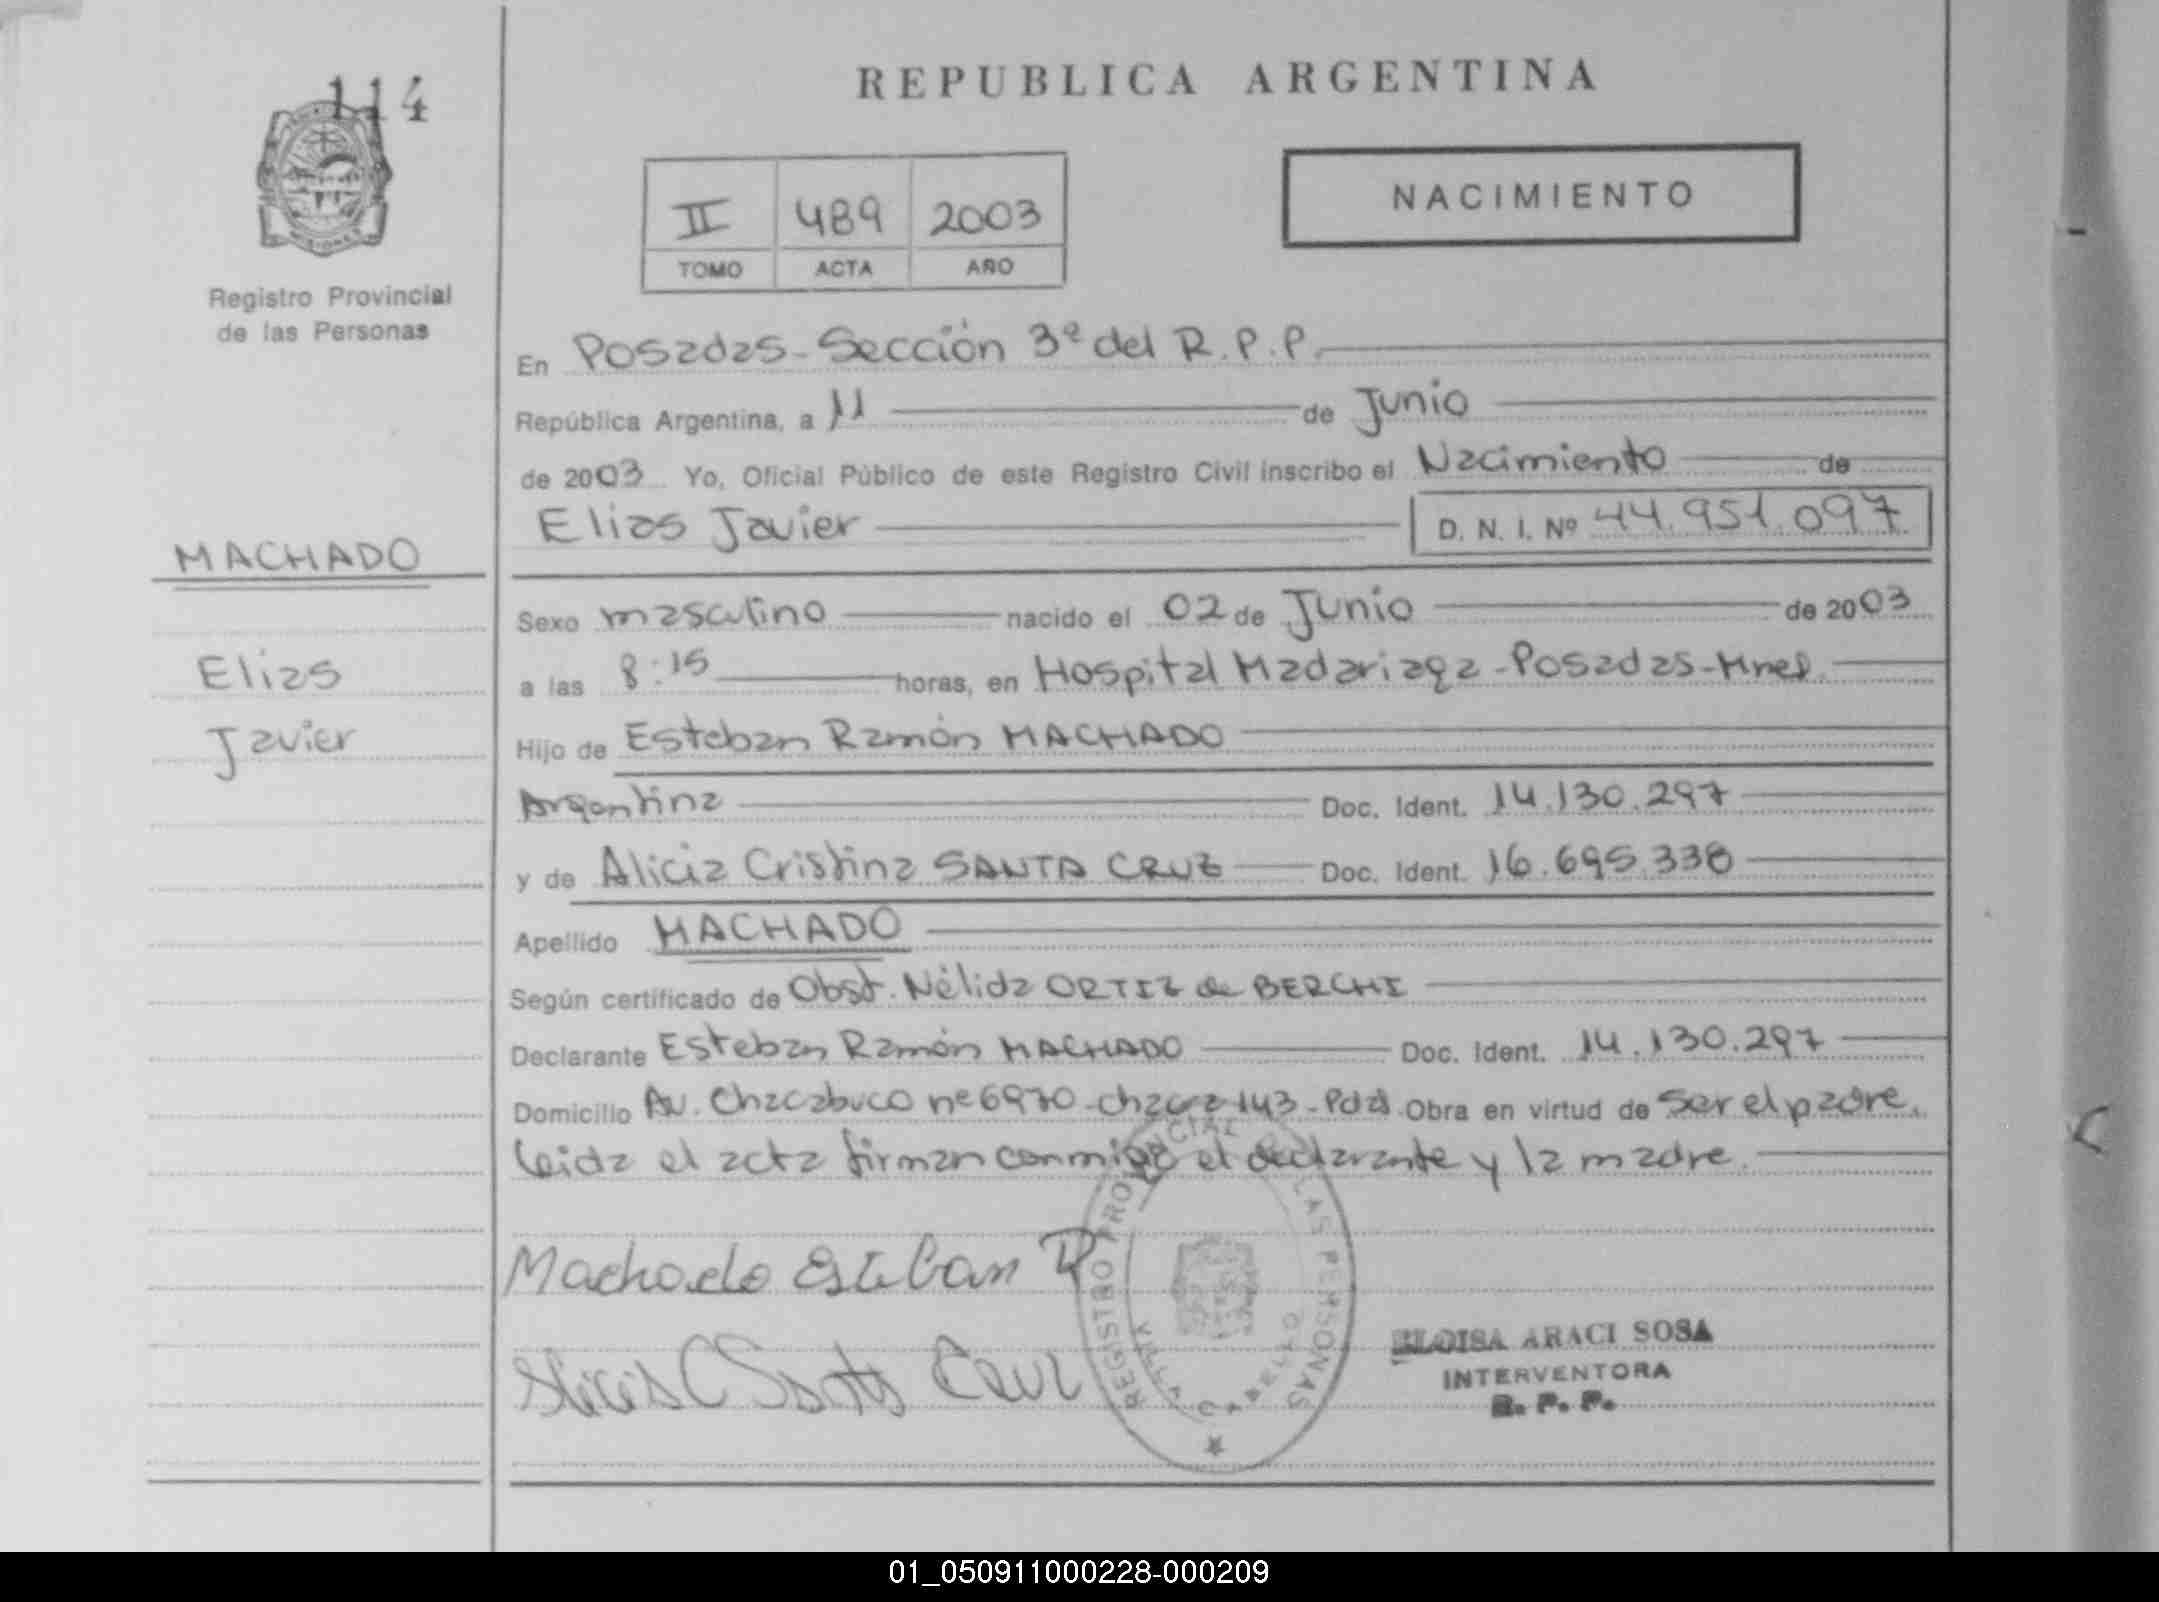 114
REPUBLICA ARGENTINA
NACIMIENTO
II 489 2003
TOMO ACTA AÑO
Registro Provincial
de las Personas
En Posadas - Sección 3ª del R.P.P.
República Argentina, a 11 de Junio
de 2003 Yo, Oficial Público de este Registro Civil inscribo el Nacimiento de
Elias Javier D. N. I. Nº 44.951.097
MACHADO
Elias
Javier
Sexo masculino nacido el 02 de Junio de 2003
a las 8:15 horas, en Hospital Madariaga - Posadas - Mnes.
Hijo de Esteban Ramón MACHADO
Argentina Doc. Ident. 14.130.297
y de Alicia Cristina SANTA CRUZ Doc. Ident. 16.695.338
Apellido MACHADO
Según certificado de Obst. Nélida ORTIZ de BERCHI
Declarante Esteban Ramón MACHADO Doc. Ident. 14.130.297
Domicilio Av. Chacabuco nº 6970 - chacra 143 - Pdas. Obra en virtud de ser el padre.
Leida el acta firman conmigo el declarante y la madre.
Machado Esteban R
Alicia C Santa Cruz
REGISTRO PROVINCIAL LAS PERSONAS
CABELLO
ELOISA ARACI SOSA
INTERVENTORA
R. P. P.
01_050911000228-000209